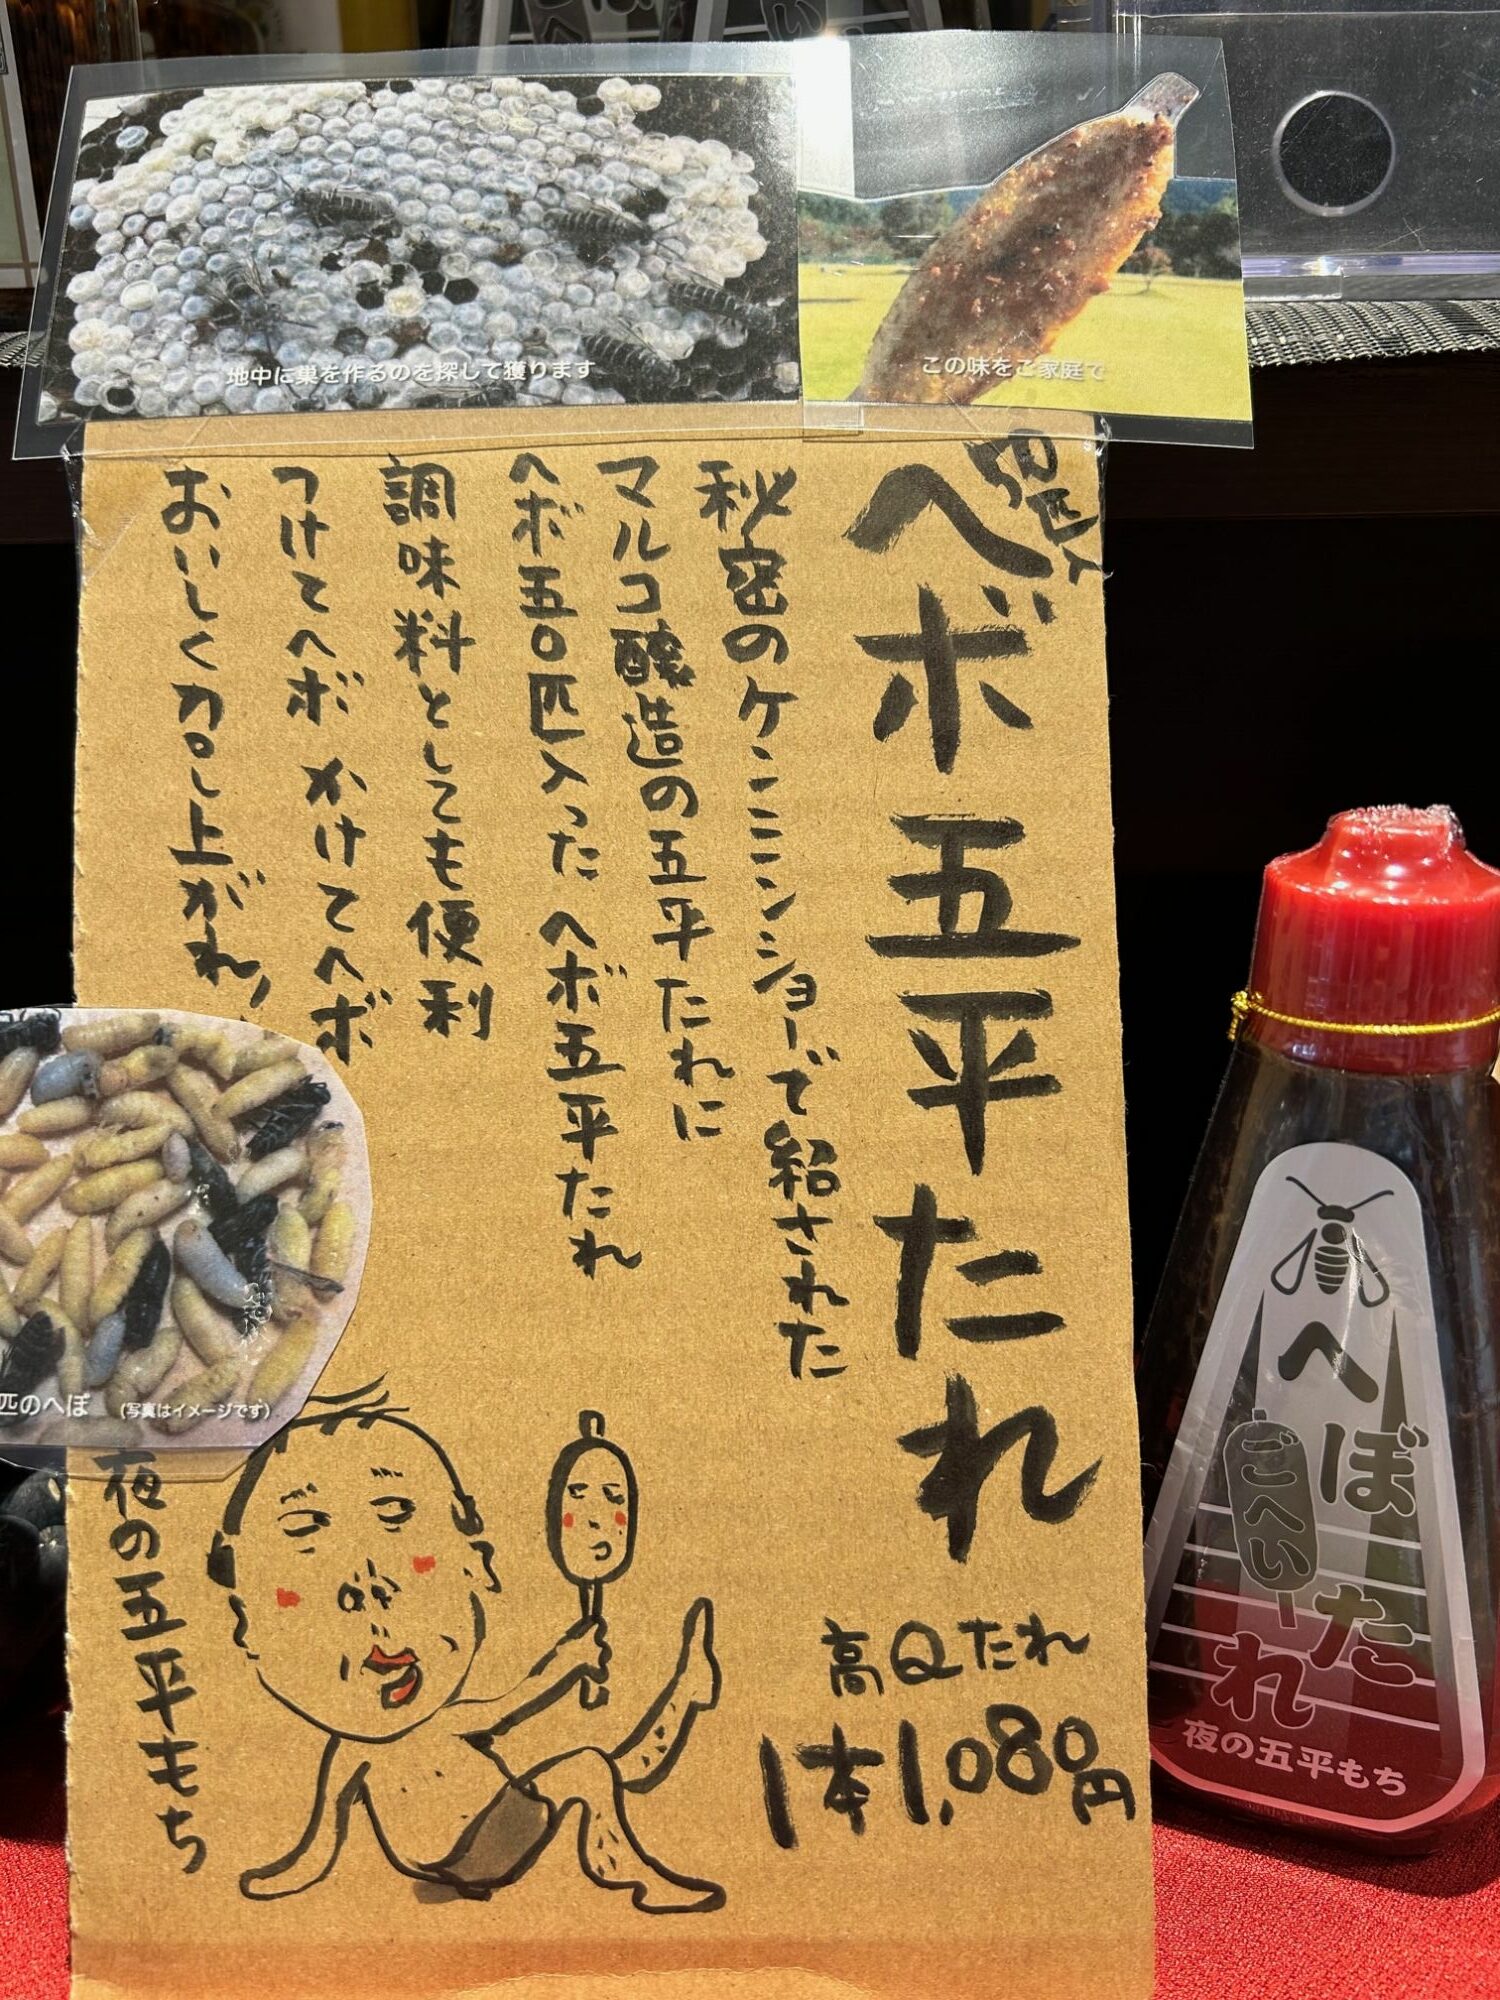 地中に巣を作るのを探して獲ります
この味をご家庭で
50匹入
ヘボ五平たれ
秘密のケンミンショーで紹された
マルコ醸造の五平たれに
ヘボ五〇匹入った ヘボ五平たれ
調味料としても便利
つけてヘボ かけてヘボ
おいしく召し上がれ!
匹のへぼ (写真はイメージです)
夜の五平もち
高Qたれ
1本1,080円
へぼ
ごへい
たれ
夜の五平もち